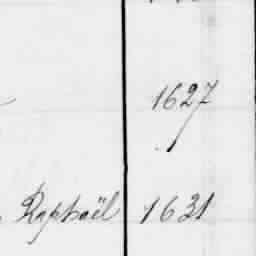 1627
Raphaël 1631